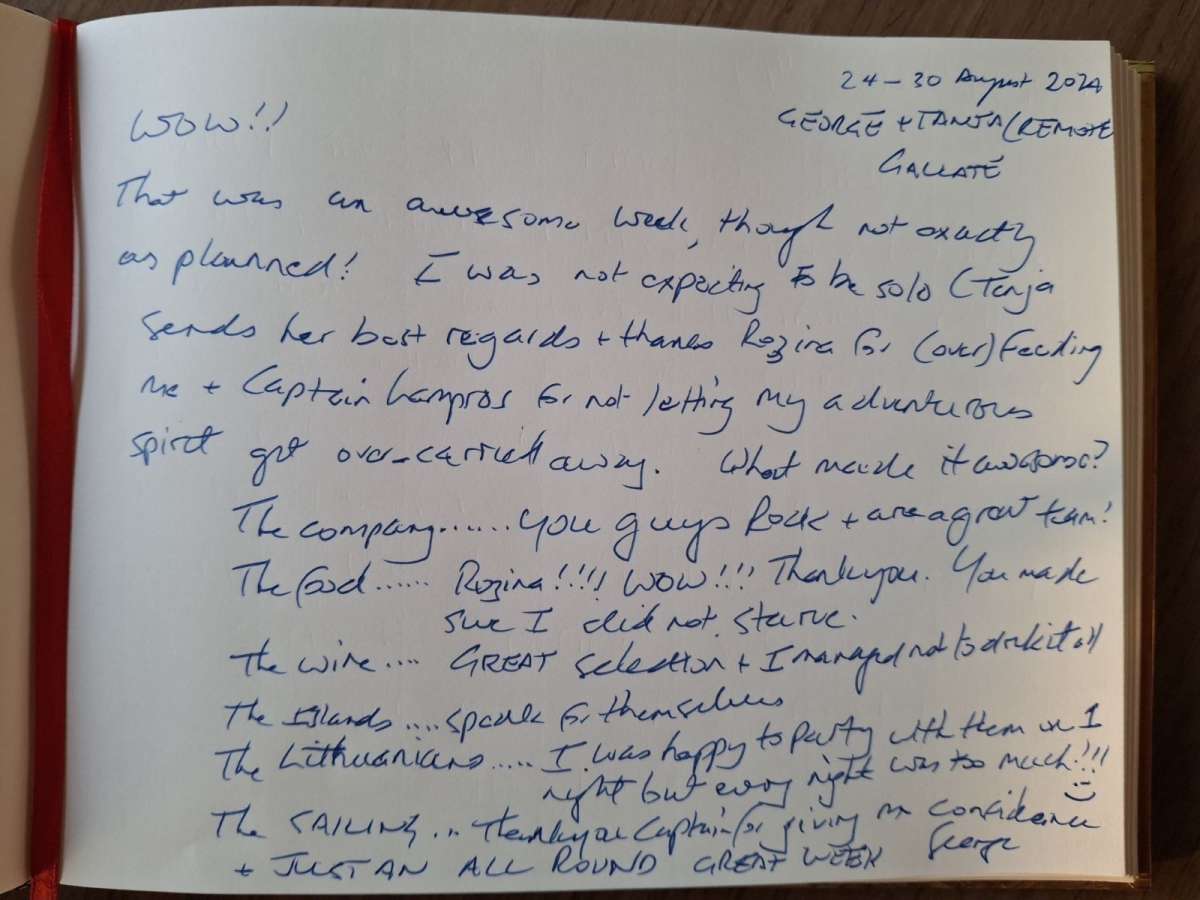 24 – 30 August 2024
GEORGE + TANJA (REMOTE
GALLATE
WOW!!
That was an awesome week, though not exactly
as planned! I was not expecting to be solo (Tanja
sends her best regards + thanks Rozina for (over) feeding
me + Captain Lampros for not letting my adventurous
spirit get over-carried away. What made it awesome?
The company....... you guys Rock + are a great team!
The food...... Rozina!!!!! WOW!!! Thankyou. You made
sure I did not starve.
The wine.... GREAT selection + I managed not to drink it all
The Islands.... speak for themselves
The Lithuanians..... I was happy to party with them on 1
night but every night was too much!!!
The SAILING... Thankyou Captain for giving me confidence
+ JUST AN ALL ROUND GREAT WEEK George